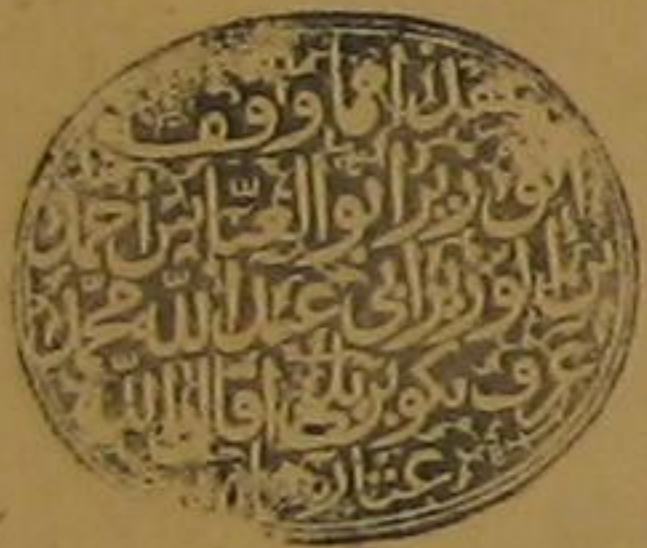 هذا ما وقف
الوزير أبو العباس أحمد
بن الوزير أبي عبد الله محمد
عرف بكوبريلي أقال الله
عثارهما